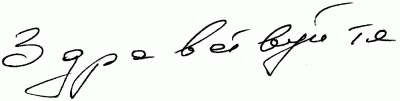 Здравствуйте